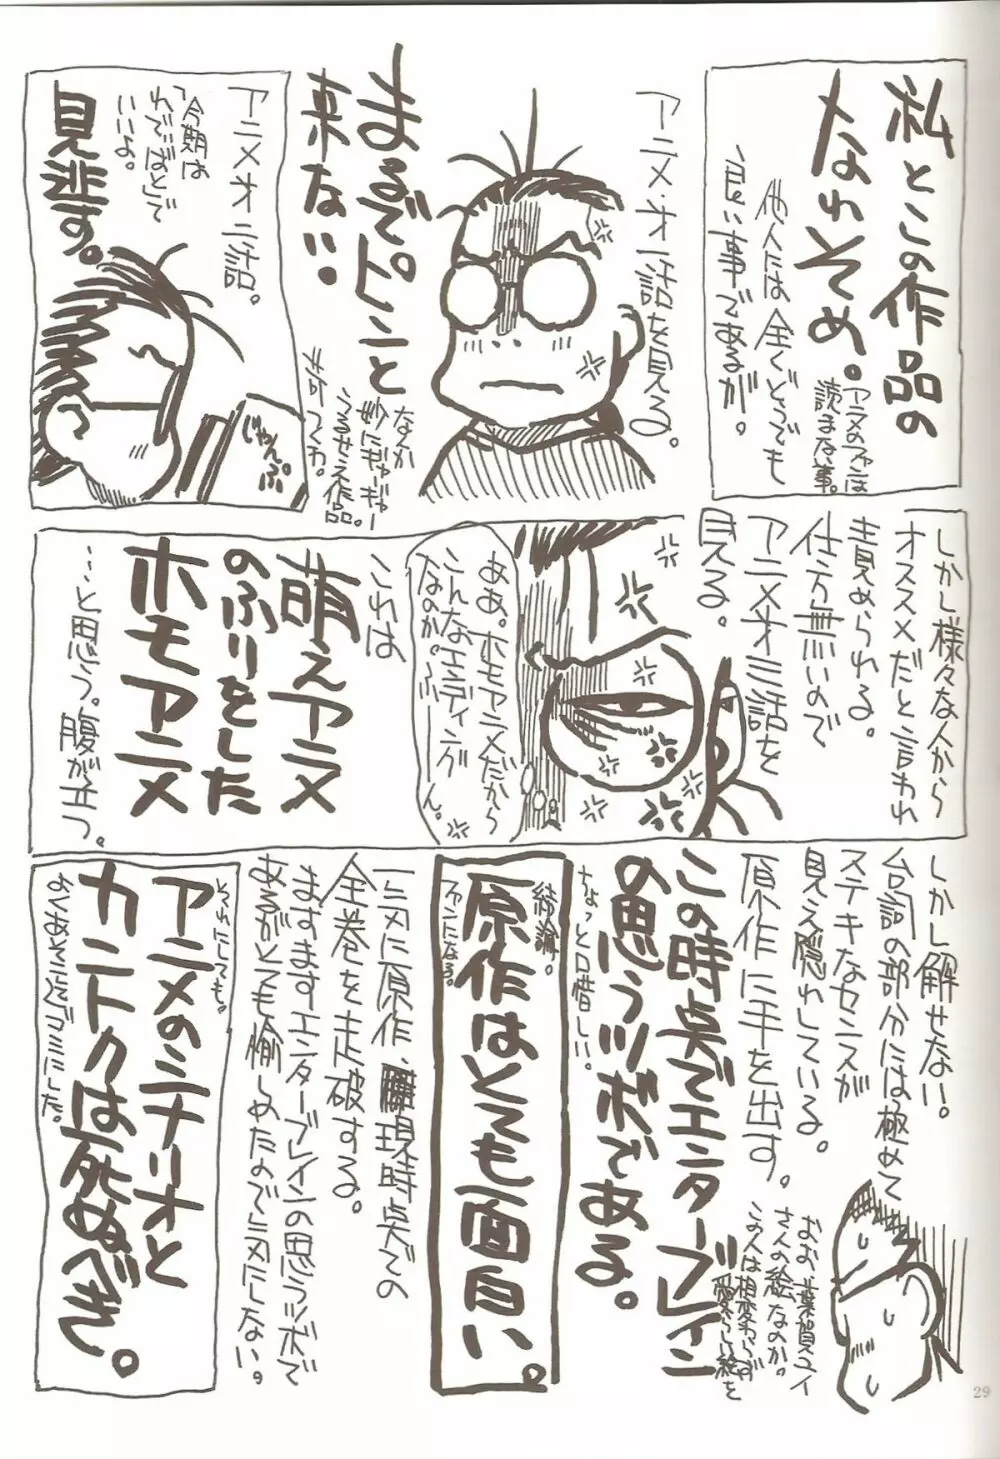 私とこの作品の
なれそめ。
アニメのファンは
読まな事。
他人には全くどうでも
良い事であるが。
アニメオ一話を見る。
まるでピンと
来ない。
なんか
妙にギャーギャー
うるせえ作品。
アニメオ二話。
「今期は
われぼと」で
いいよ。
見逃す。
じゃんぷ
しかし様々な人から
オススメだと言われ
責められる。
仕方無いので
アニメオ三話を
見る。
ああ。ホモアニメだから
こんなエンディング
なのか。ふーん。
これは
萌えアニメ
のふりをした
ホモアニメ
…と思う。腹が立つ。
しかし解せない。
台詞の部分には極めて
ステキなセンスが
見え隠れしている。
原作に手を出す。
おお、葉賀ユイ
さんの絵なのか。
この人は相変わらず
愛らしい絵を
この時点でエンターブレイン
の思うツボである。
ちょっと口惜しい…
結論。
原作はとても面白い。
ファンになる。
一気に原作、現時点での
全巻を走破する。
ますますエンターブレインの思うツボで
あるがとても愉しめたので気にしない。
それにしても。
アニメのシナリオと
カントクは死ぬべき。
29